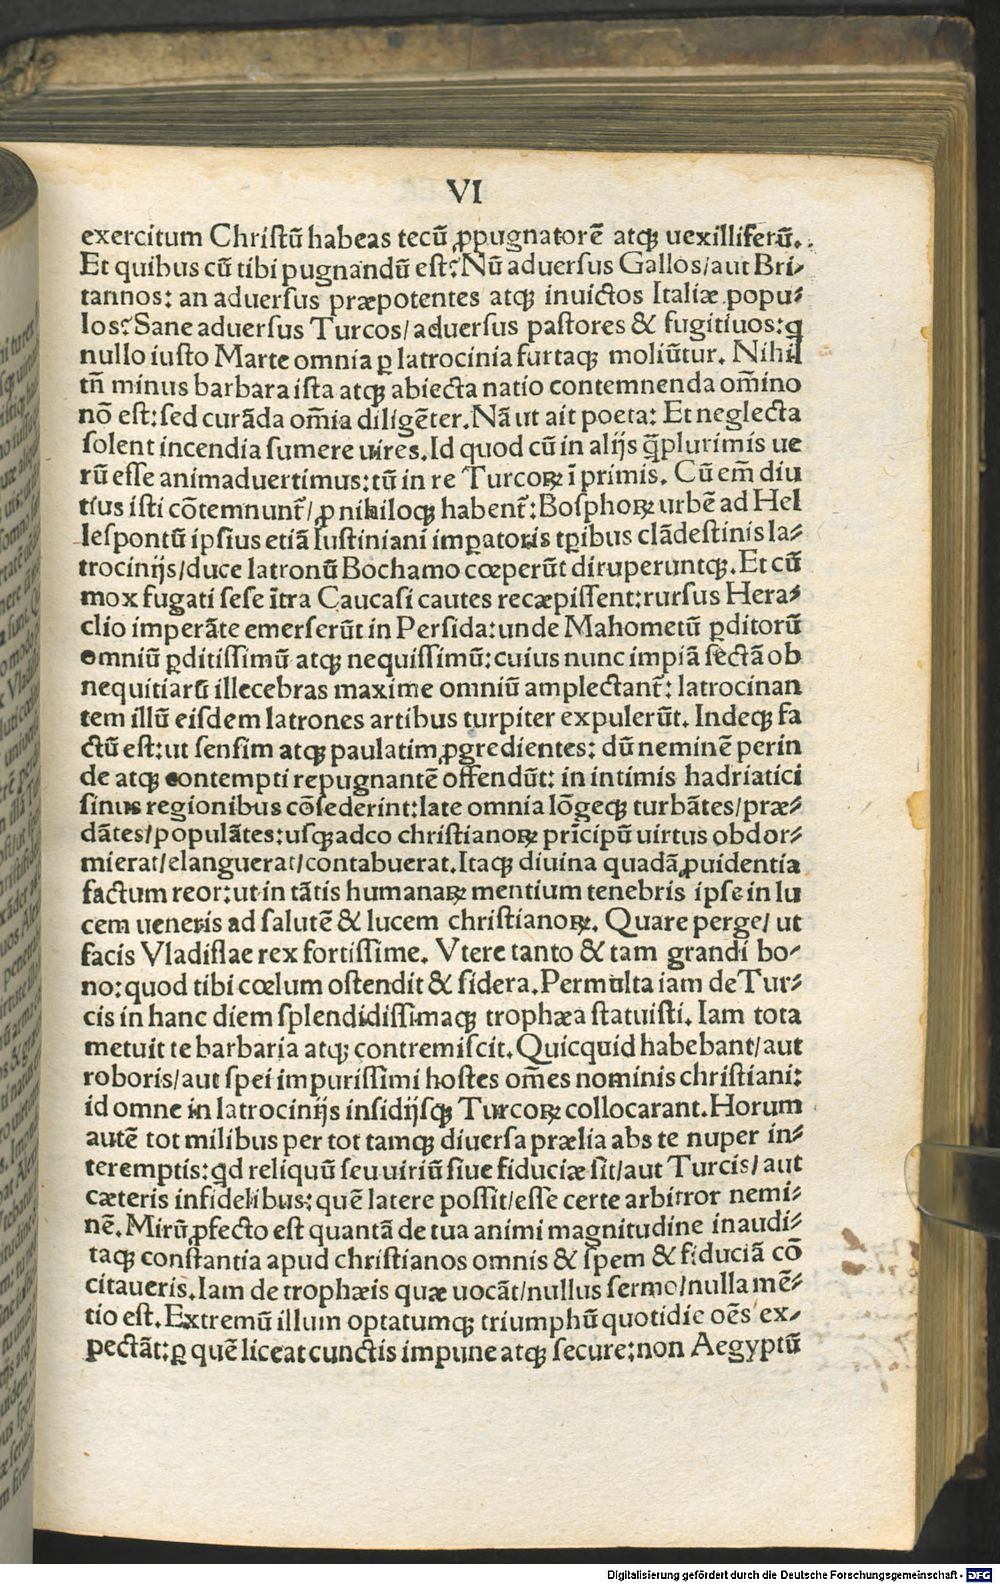 VI
exercitum Chriſtū habeas tecū ꝓpugnatorē atqꝫ uexilliferū.
Et quibus cū tibi pugnandū eſt? Nū aduerſus Gallos/aut Bri-
tannos: an aduerſus præpotentes atqꝫ inuictos Italiæ popu-
los? Sane aduerſus Turcos/aduerſus paſtores & fugitiuos: q
nullo iuſto Marte omnia ꝑ latrocinia furtaqꝫ moliūtur. Nihil
tñ minus barbara iſta atqꝫ abiecta natio contemnenda om̄ino
nō eſt: ſed curāda om̄ia diligēter. Nā ut ait poeta: Et neglecta
ſolent incendia ſumere uires. Id quod cū in alijs q̄plurimis ue
rū eſſe animaduertimus: tū in re Turcoꝝ ī primis. Cū em̄ diu
tius iſti cōtemnunt̄/ ꝓ nihiloqꝫ habent̄: Boſphoꝝ urbē ad Hel
leſpontū ipſius etiā Iuſtiniani imꝑatoris tꝑibus clādeſtinis la-
trocinijs/duce latronū Bochamo cœperūt diruperuntqꝫ. Et cū
mox fugati ſeſe ītra Caucaſi cautes recæpiſſent: rurſus Hera-
clio imperāte emerſerūt in Perſida: unde Mahometū ꝑditorū
omniū ꝑditiſſimū atqꝫ nequiſſimū: cuius nunc impiā ſectā ob
nequitiarū illecebras maxime omniū amplectant̄: latrocinan
tem illū eiſdem latrones artibus turpiter expulerūt. Indeqꝫ fa
ctū eſt: ut ſenſim atqꝫ paulatim ꝓgredientes: dū neminē perin
de atqꝫ contempti repugnantē offendūt: in intimis hadriatici
ſinus regionibus cōſederint: late omnia lōgeqꝫ turbātes/præ-
dātes/populātes: uſqꝫ adeo chriſtianoꝝ prīcipū uirtus obdor-
mierat/elanguerat/contabuerat. Itaqꝫ diuina quadā ꝓuidentia
factum reor: ut in tātis humanaꝝ mentium tenebris ipſe in lu
cem ueneris ad ſalutē & lucem chriſtianoꝝ. Quare perge/ ut
facis Vladiſlae rex fortiſſime. Vtere tanto & tam grandi bo-
no: quod tibi cœlum oſtendit & ſidera. Permulta iam de Tur-
cis in hanc diem ſplendidiſſimaqꝫ trophæa ſtatuiſti. Iam tota
metuit te barbaria atqꝫ contremiſcit. Quicquid habebant/aut
roboris/aut ſpei impuriſſimi hoſtes om̄es nominis chriſtiani:
id omne in latrocinijs inſidijſqꝫ Turcoꝝ collocarant. Horum
autē tot milibus per tot tamqꝫ diuerſa prælia abs te nuper in-
teremptis: qd reliquū ſeu uiriū ſiue fiduciæ ſit/aut Turcis/ aut
cæteris infidelibus: quē latere poſſit/eſſe certe arbitror nemi-
nē. Mirū ꝓfecto eſt quantā de tua animi magnitudine inaudi-
taqꝫ conſtantia apud chriſtianos omnis & ſpem & fiduciā cō
citaueris. Iam de trophæis quæ uocāt/nullus ſermo/nulla mē-
tio eſt. Extremū illum optatumqꝫ triumphū quotidie oēs ex-
pectāt: ꝑ quē liceat cunctis impune atqꝫ ſecure: non Aegyptū
Digitalisierung gefördert durch die Deutsche Forschungsgemeinschaft - DFG